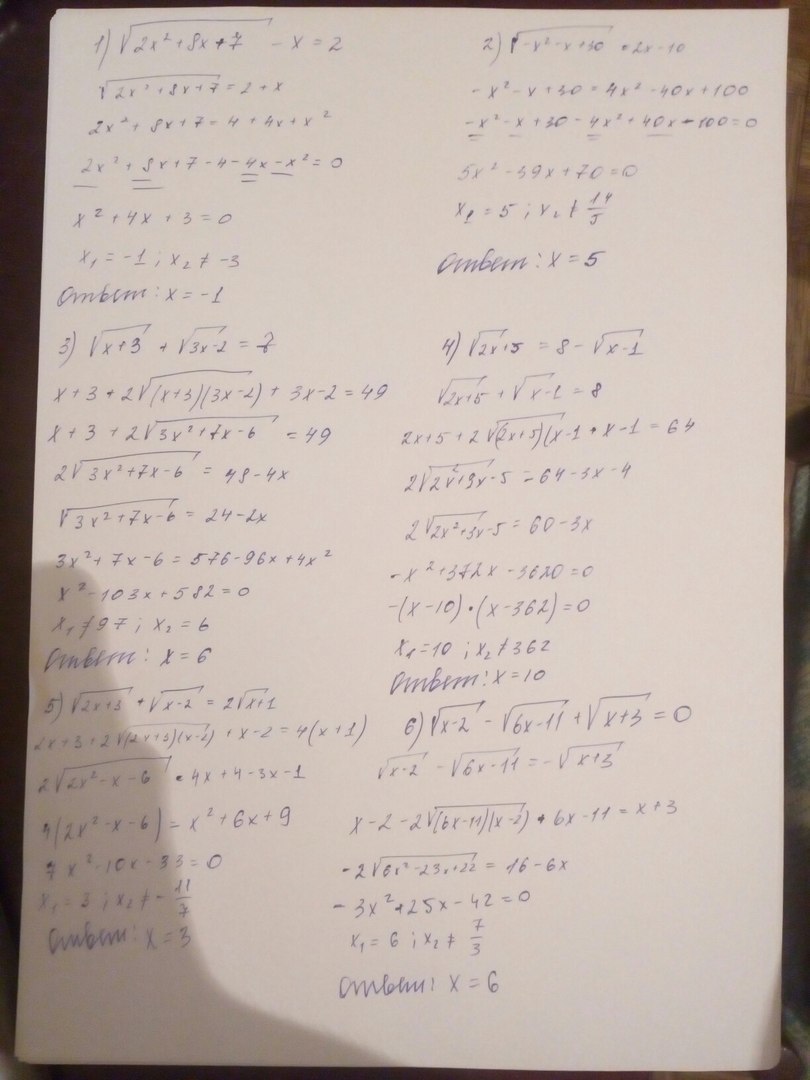 1) √(2x²+8x+7) - x = 2
√(2x²+8x+7) = 2+x
2x²+8x+7 = 4+4x+x²
2x²+8x+7-4-4x-x² = 0
x²+4x+3=0
x₁ = -1 ; x₂ ≠ -3
Ответ: x = -1
2) √(-x²-x+30) = 2x-10
-x²-x+30 = 4x²-40x+100
-x²-x+30-4x²+40x-100=0
5x²-39x+70=0
x₁ = 5 ; x₂ ≠ 14/5
Ответ: x = 5
3) √(x+3) + √(3x-2) = 7
x+3+2√((x+3)(3x-2)) + 3x-2 = 49
x+3+2√(3x²+7x-6) = 49
2√(3x²+7x-6) = 48-4x
√(3x²+7x-6) = 24-2x
3x²+7x-6 = 576-96x+4x²
x²-103x+582=0
x₁ ≠ 97 ; x₂ = 6
Ответ: x = 6
4) √(2x+5) = 8 - √(x-1)
√(2x+5) + √(x-1) = 8
2x+5+2√((2x+5)(x-1 + x-1 = 64
2√(2x²+3x-5) = 64-3x-4
2√(2x²+3x-5) = 60-3x
-x²+372x-3620=0
-(x-10)·(x-362)=0
x₁=10 ; x₂≠362
Ответ: x=10
5) √(2x+3) + √(x-2) = 2√(x+1)
2x+3+2√((2x+3)(x-2)) + x-2 = 4(x+1)
2√(2x²-x-6) = 4x+4-3x-1
4(2x²-x-6) = x²+6x+9
7x²-10x-33=0
x₁=3 ; x₂ ≠ -11/7
Ответ: x = 3
6) √(x-2) - √(6x-11) + √(x+3) = 0
√(x-2) - √(6x-11) = -√(x+3)
x-2-2√((6x-11)(x-2)) + 6x-11 = x+3
-2√(6x²-23x+22) = 16-6x
-3x²+25x-42=0
x₁=6 ; x₂ ≠ 7/3
Ответ: x = 6